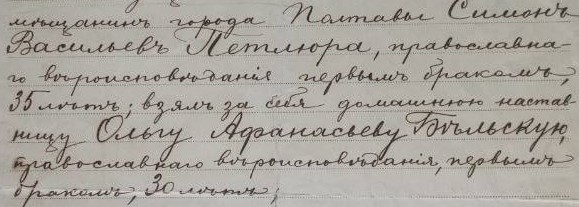 мѣщанинъ города Полтавы Симонъ
Васильевъ Петлюра, православна-
го вѣроисповѣданія первымъ бракомъ,
35 лѣтъ; взялъ за себя домашнюю настав-
ницу Ольгу Афанасьеву Бѣльскую,
православнаго вѣроисповѣданія, первымъ
бракомъ, 30 лѣтъ;